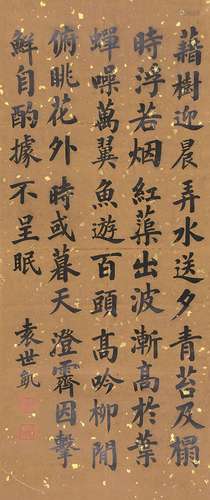 藉樹迎晨弄水送夕青苔及榻
時浮若烟紅蕖出波漸高於葉
蟬噪萬翼魚遊百頭高吟柳間
俯眺花外時或暮天澄霽因擊
鮮自酌據不呈眠
袁世凱